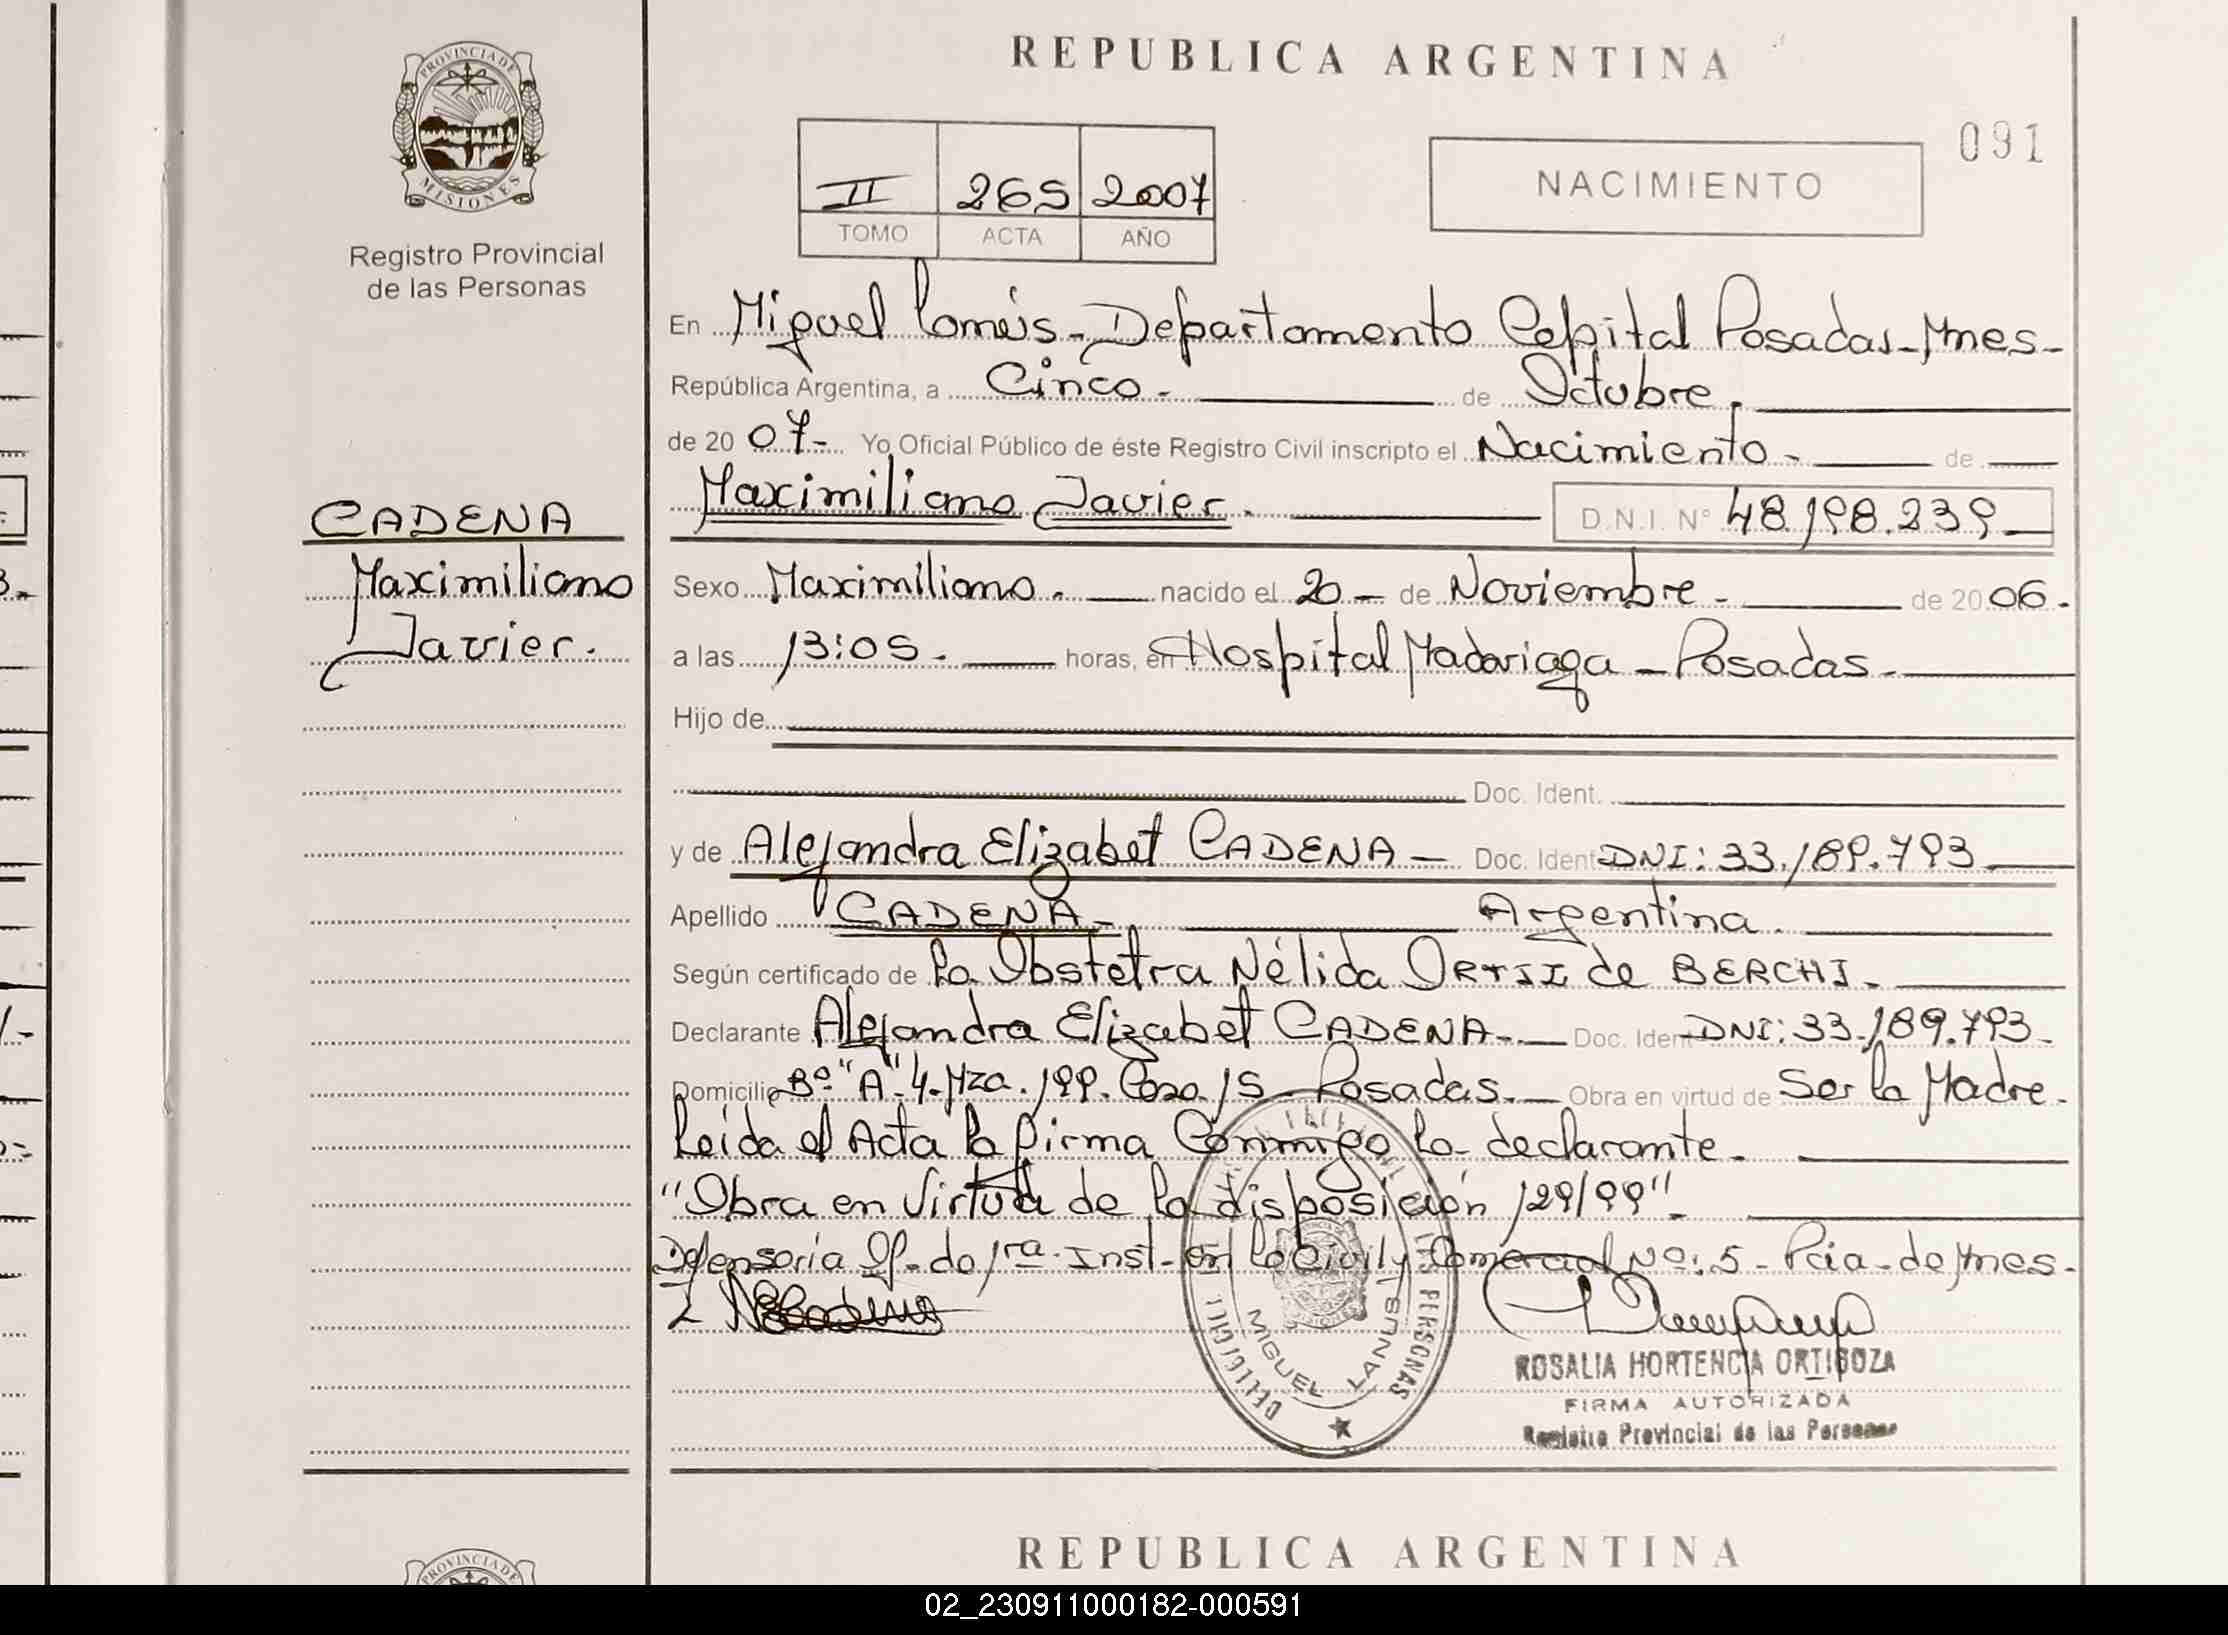 PROVINCIA DE
MISIONES
Registro Provincial
de las Personas
CADENA
Maximiliano
Javier.
REPUBLICA ARGENTINA
091
II 265 2007
TOMO ACTA AÑO
NACIMIENTO
En Miguel Lanús - Departamento Capital Posadas - Mnes -
República Argentina, a Cinco - de Octubre.
de 20 07- Yo Oficial Público de éste Registro Civil inscripto el Nacimiento - de
Maximiliano Javier. D.N.I. N° 48.198.239
Sexo Maximiliano. nacido el 20 - de Noviembre - de 20 06.
a las 13:05. horas, en Hospital Madariaga - Posadas.
Hijo de
Doc. Ident.
y de Alejandra Elizabet CADENA - Doc. Ident DNI: 33.189.793
Apellido CADENA - Argentina.
Según certificado de la Obstetra Nélida ORTIZ de BERCHI.
Declarante Alejandra Elizabet CADENA - Doc. Ident DNI: 33.189.793.
Domicilio Bº "A" 4. Mza. 199. Casa 15 - Posadas. Obra en virtud de Ser la Madre.
Leída el Acta la firma Conmigo la declarante.
"Obra en Virtud de la disposición 129/99"
Defensoría Of. de 1ra. Inst. en lo Civil y Comercial Nº: 5 - Pcia - de Mnes.
MIGUEL LANUS
PERSONAS
ROSALIA HORTENCIA ORTIGOZA
FIRMA AUTORIZADA
Registro Provincial de las Personas
PROVINCIA DE
REPUBLICA ARGENTINA
02_230911000182-000591